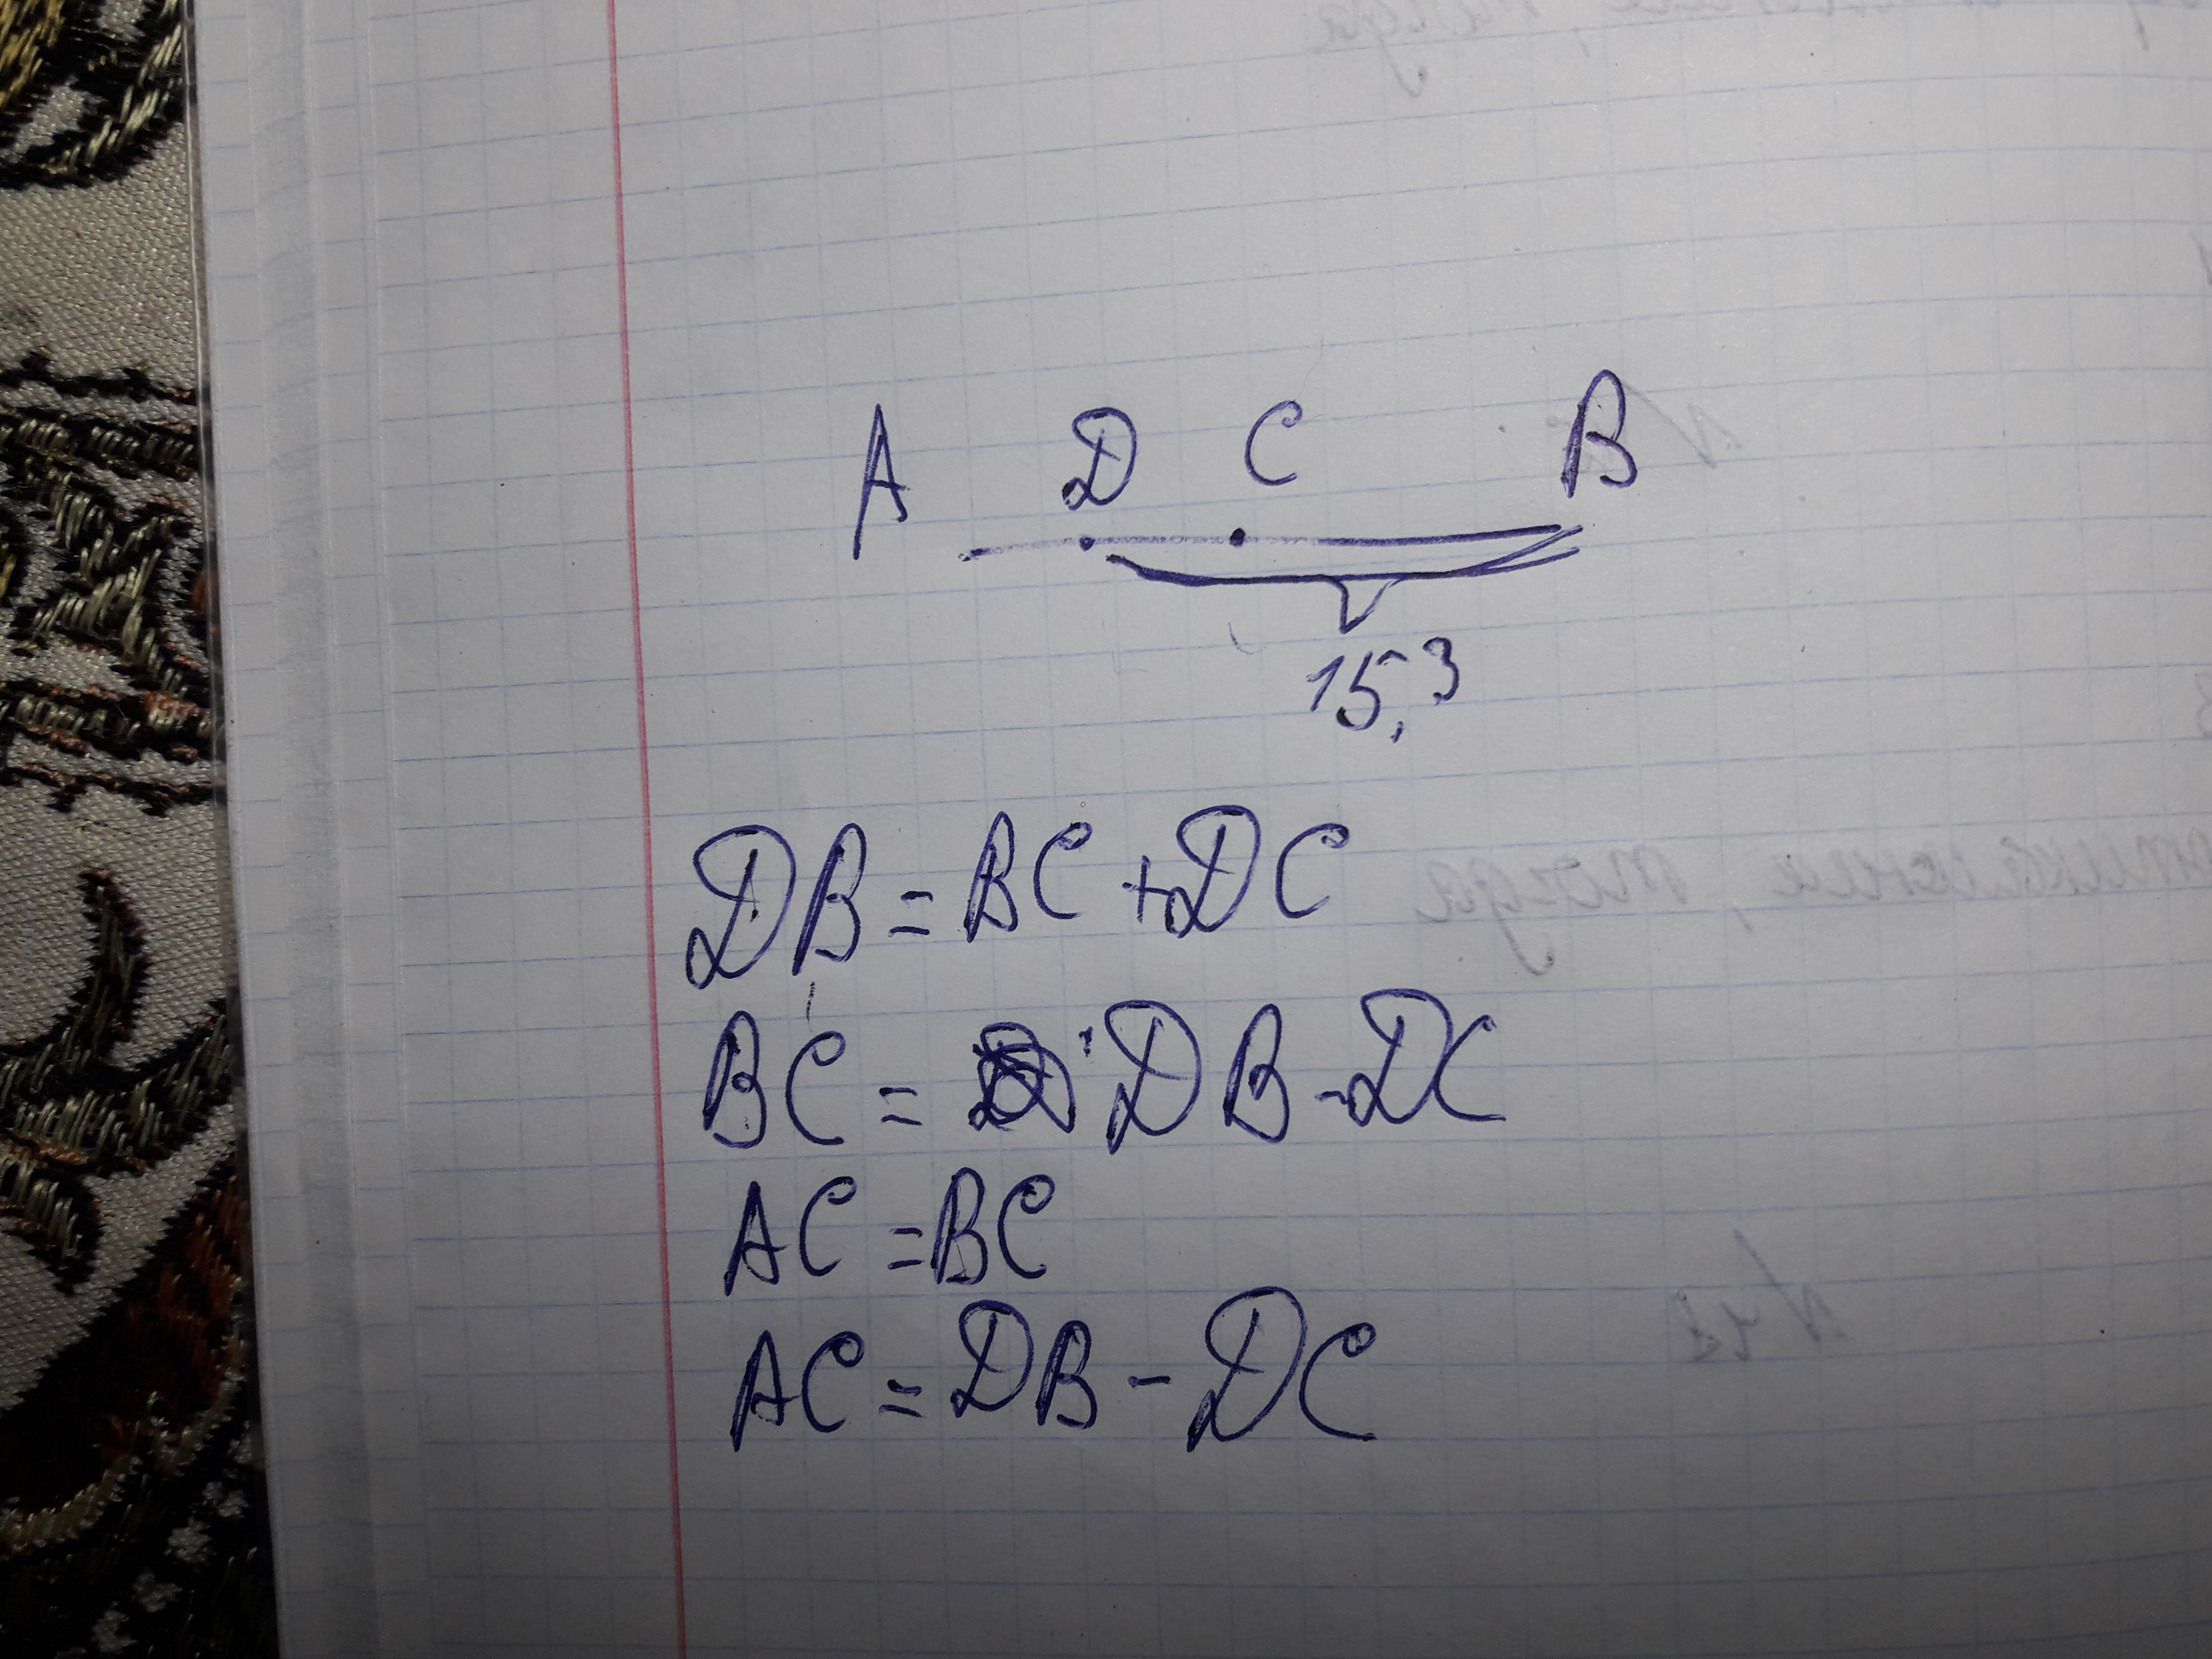 A D C B
15,3
DB = BC + DC
BC = DB - DC
AC = BC
AC = DB - DC